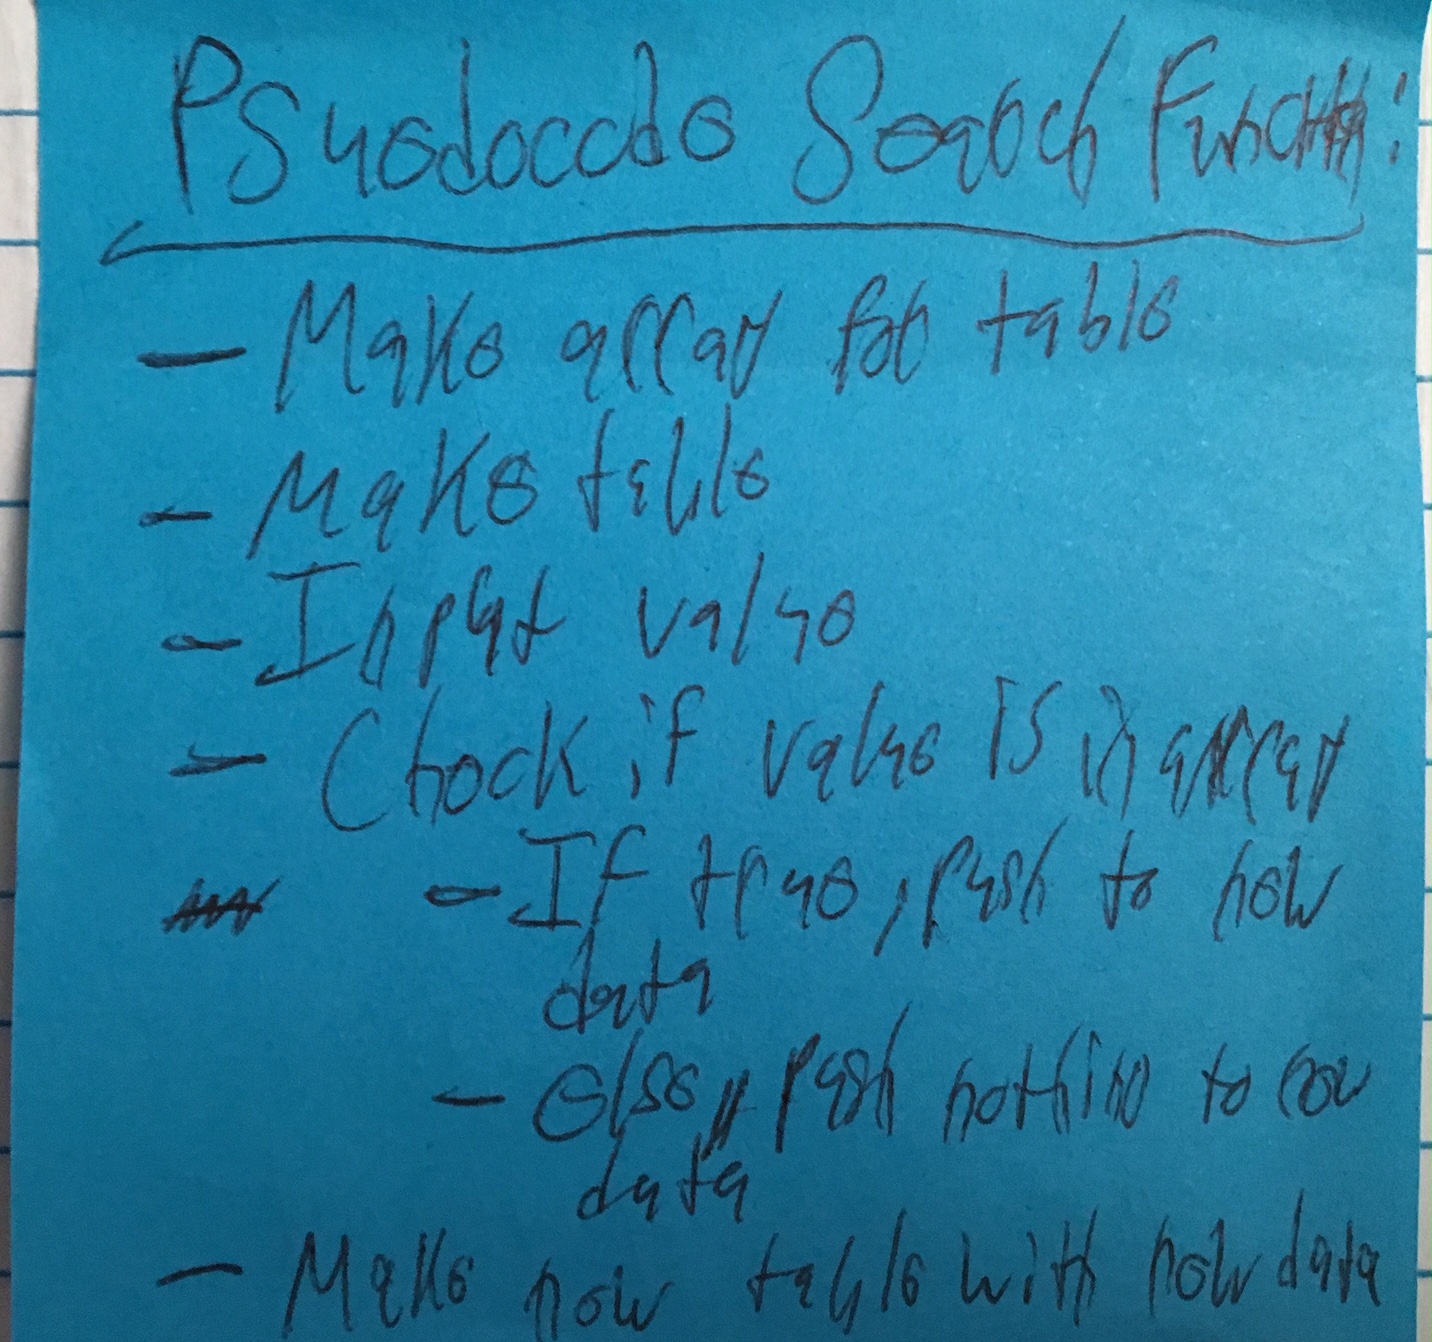 Psuedocode Search Function:
- Make array for table
- Make table
- Input value
- Check if value is in array
- If true, push to new
data
- else, push nothing to new
data
- Make new table with new data